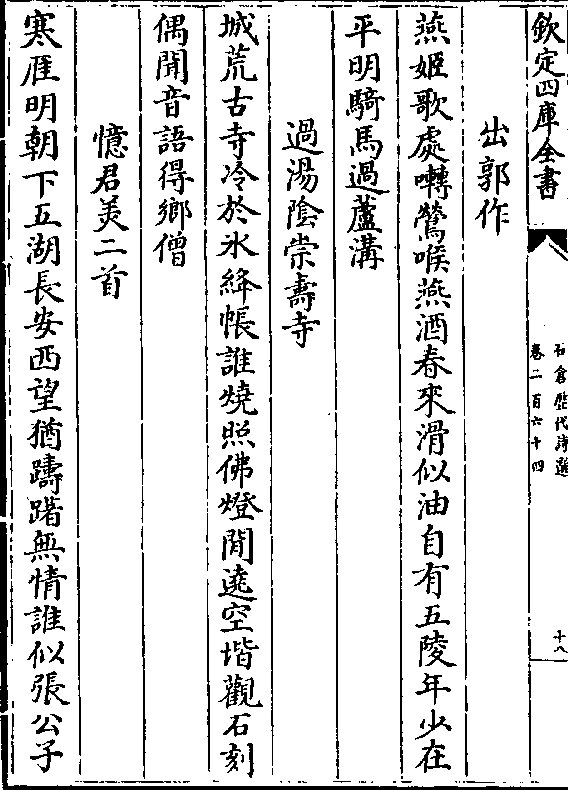 欽定四庫全書
石倉歷代詩選
卷二百六十四
十八
出郭作
燕姬歌處囀鶯喉燕酒春來滑似油自有五陵年少在
平明騎馬過蘆溝
過湯陰崇壽寺
城荒古寺冷於氷絳帳誰燒照佛燈閒遶空堦觀石刻
偶聞音語得鄉僧
憶君美二首
寒厓明朝下五湖長安西望猶躊躇無情誰似張公子